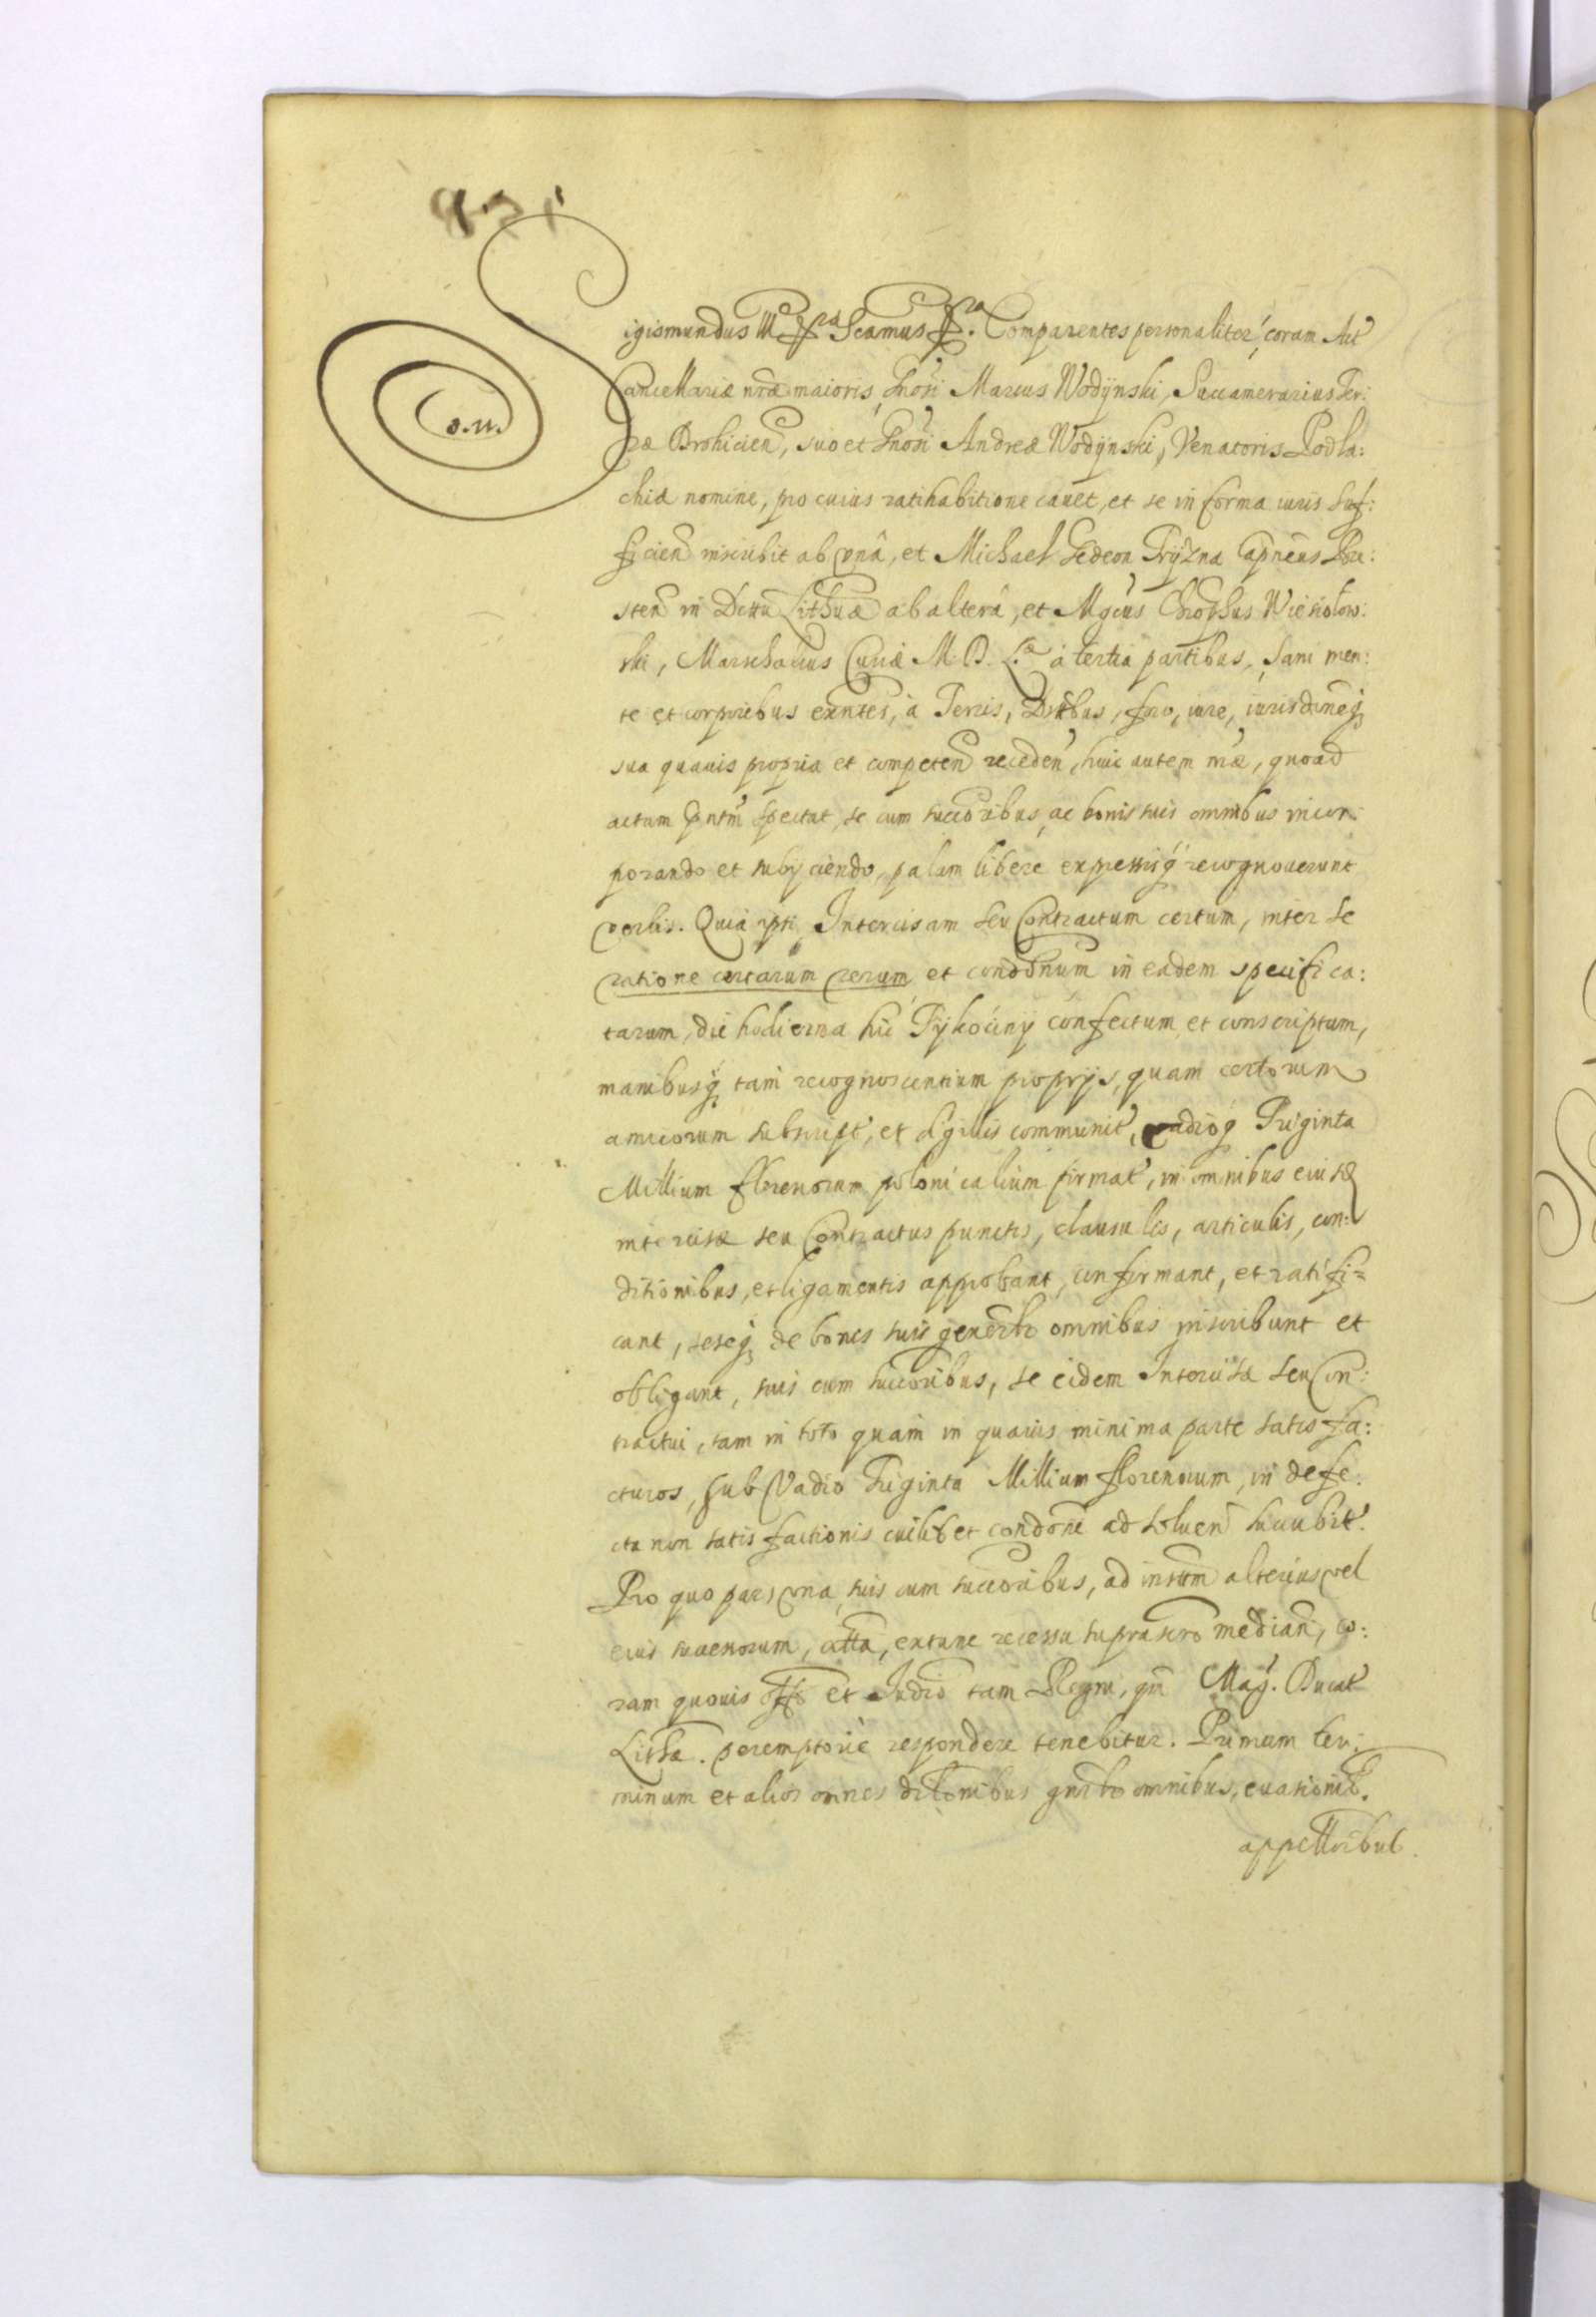 Sigismundus III etc̃ra Scamus etc̃ra. Comparentes personaliter, coram Act̃
Cancellariæ nr̃æ maioris, Gn̄osi Marcus Wodÿnski, Succamerarius Ter:
ræ Drohicien̄, suo et Gn̄osi Andreæ Wodÿnski, Venatoris Podla:
chiæ nomine, pro cuius ratihabitione cauet, et se in forma iuris suf:
ficien̄ inscribit ab vnâ, et Michael Gedeon Trÿzna Capn̄eus Bre:
sten̄ in Dc̄tu Lithuæ ab alterâ, et Mgc̄us Chrõphus Wiesiolow:
ski, Marschalcus Curiæ M. D. L.æ à tertia partibus, sani men:
te et corporibus exn̄tes, à Terris, Dist̄bus, foro, iure, iurisdn̄eq₃
sua quauis propria et competen̄ receden̄, huic autem nr̄æ, quoad
actum p̄ntm̄ spectat, se cum succ̄oribus, ac bonis suis omnibus incor:
porando et subijciendo, palam libere expressisq₃ recognouerunt
verbis. Quia ipsi Intercisam seu Contractum certum, inter se
ratione certarum rerum et condōnum in eadem specifica:
tarum, die hodierna hic Tÿkocinÿ confectum et conscriptum,
manibusq₃ tam recognoscentium proprijs, quam certorum
amicorum subscript̄, et sigillis communit̄, vadioq₃ Triginta
Millium florenorum polonicalium firmat̄, in omnibus eiusd
intercisæ seu Contractus punctis, clausulis, articulis, con:
ditionibus, et ligamentis approbant, confirmant, et ratifi=
cant, seseq₃ de bonis suis gener̄lr omnibus inscribunt et
obligant, suis cum succ̄oribus, se eidem Intercisæ seu Con:
tractui, tam in toto quam in quauis minima parte satisfa:
cturos, sub Vadio Triginta Millium florenorum, in defe:
ctu non satisfactionis cuilibet condōni ad soluen̄ succubit̄.
Pro quo pars vna, suis cum succ̄oribus, ad inst̄m alterius vel
eius succ̄ssorum, citt̄a, extunc recessu suprascr̄o median̄, co:
ram quouis offō et Iudiō tam Regni, qm̄ Mag. Ducat̄
Lithæ. peremptoriè respondere tenebitur. Primum ter:
minum et alios omnes diltōnibus gn̄rlr omnibus, euasionib.
appelltōnibus.